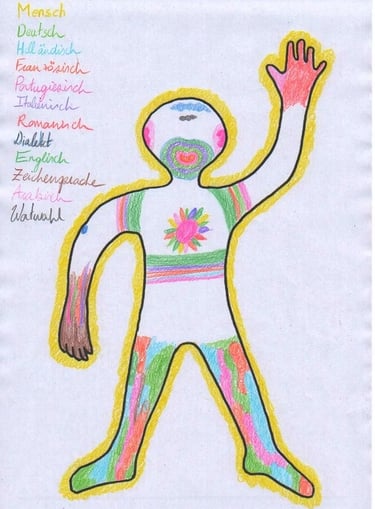 Mensch
Deutsch
Holländisch
Französisch
Portugiesisch
Italienisch
Romanisch
Dialekt
Englisch
Zeichensprache
Arabisch
Walwahl